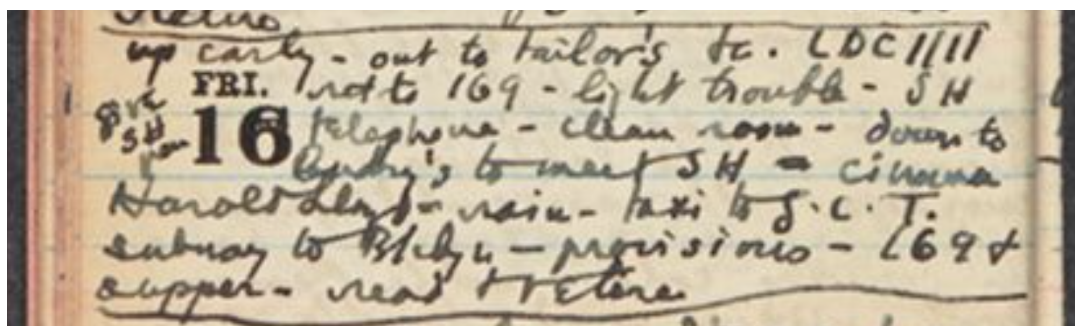 Retire
up early - out to tailor's &c. LDC ////
FRI. ret to 169 - light trouble - SH
SH
16 telephone - clean room - down to
to meet SH = cinema
Harold Lloyd - rain - taxi to G.C.T.
subway to Bklyn - provisions - 169 &
supper - read & retire